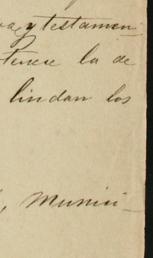 y testamen
tenece la de
lindan los
Munici-